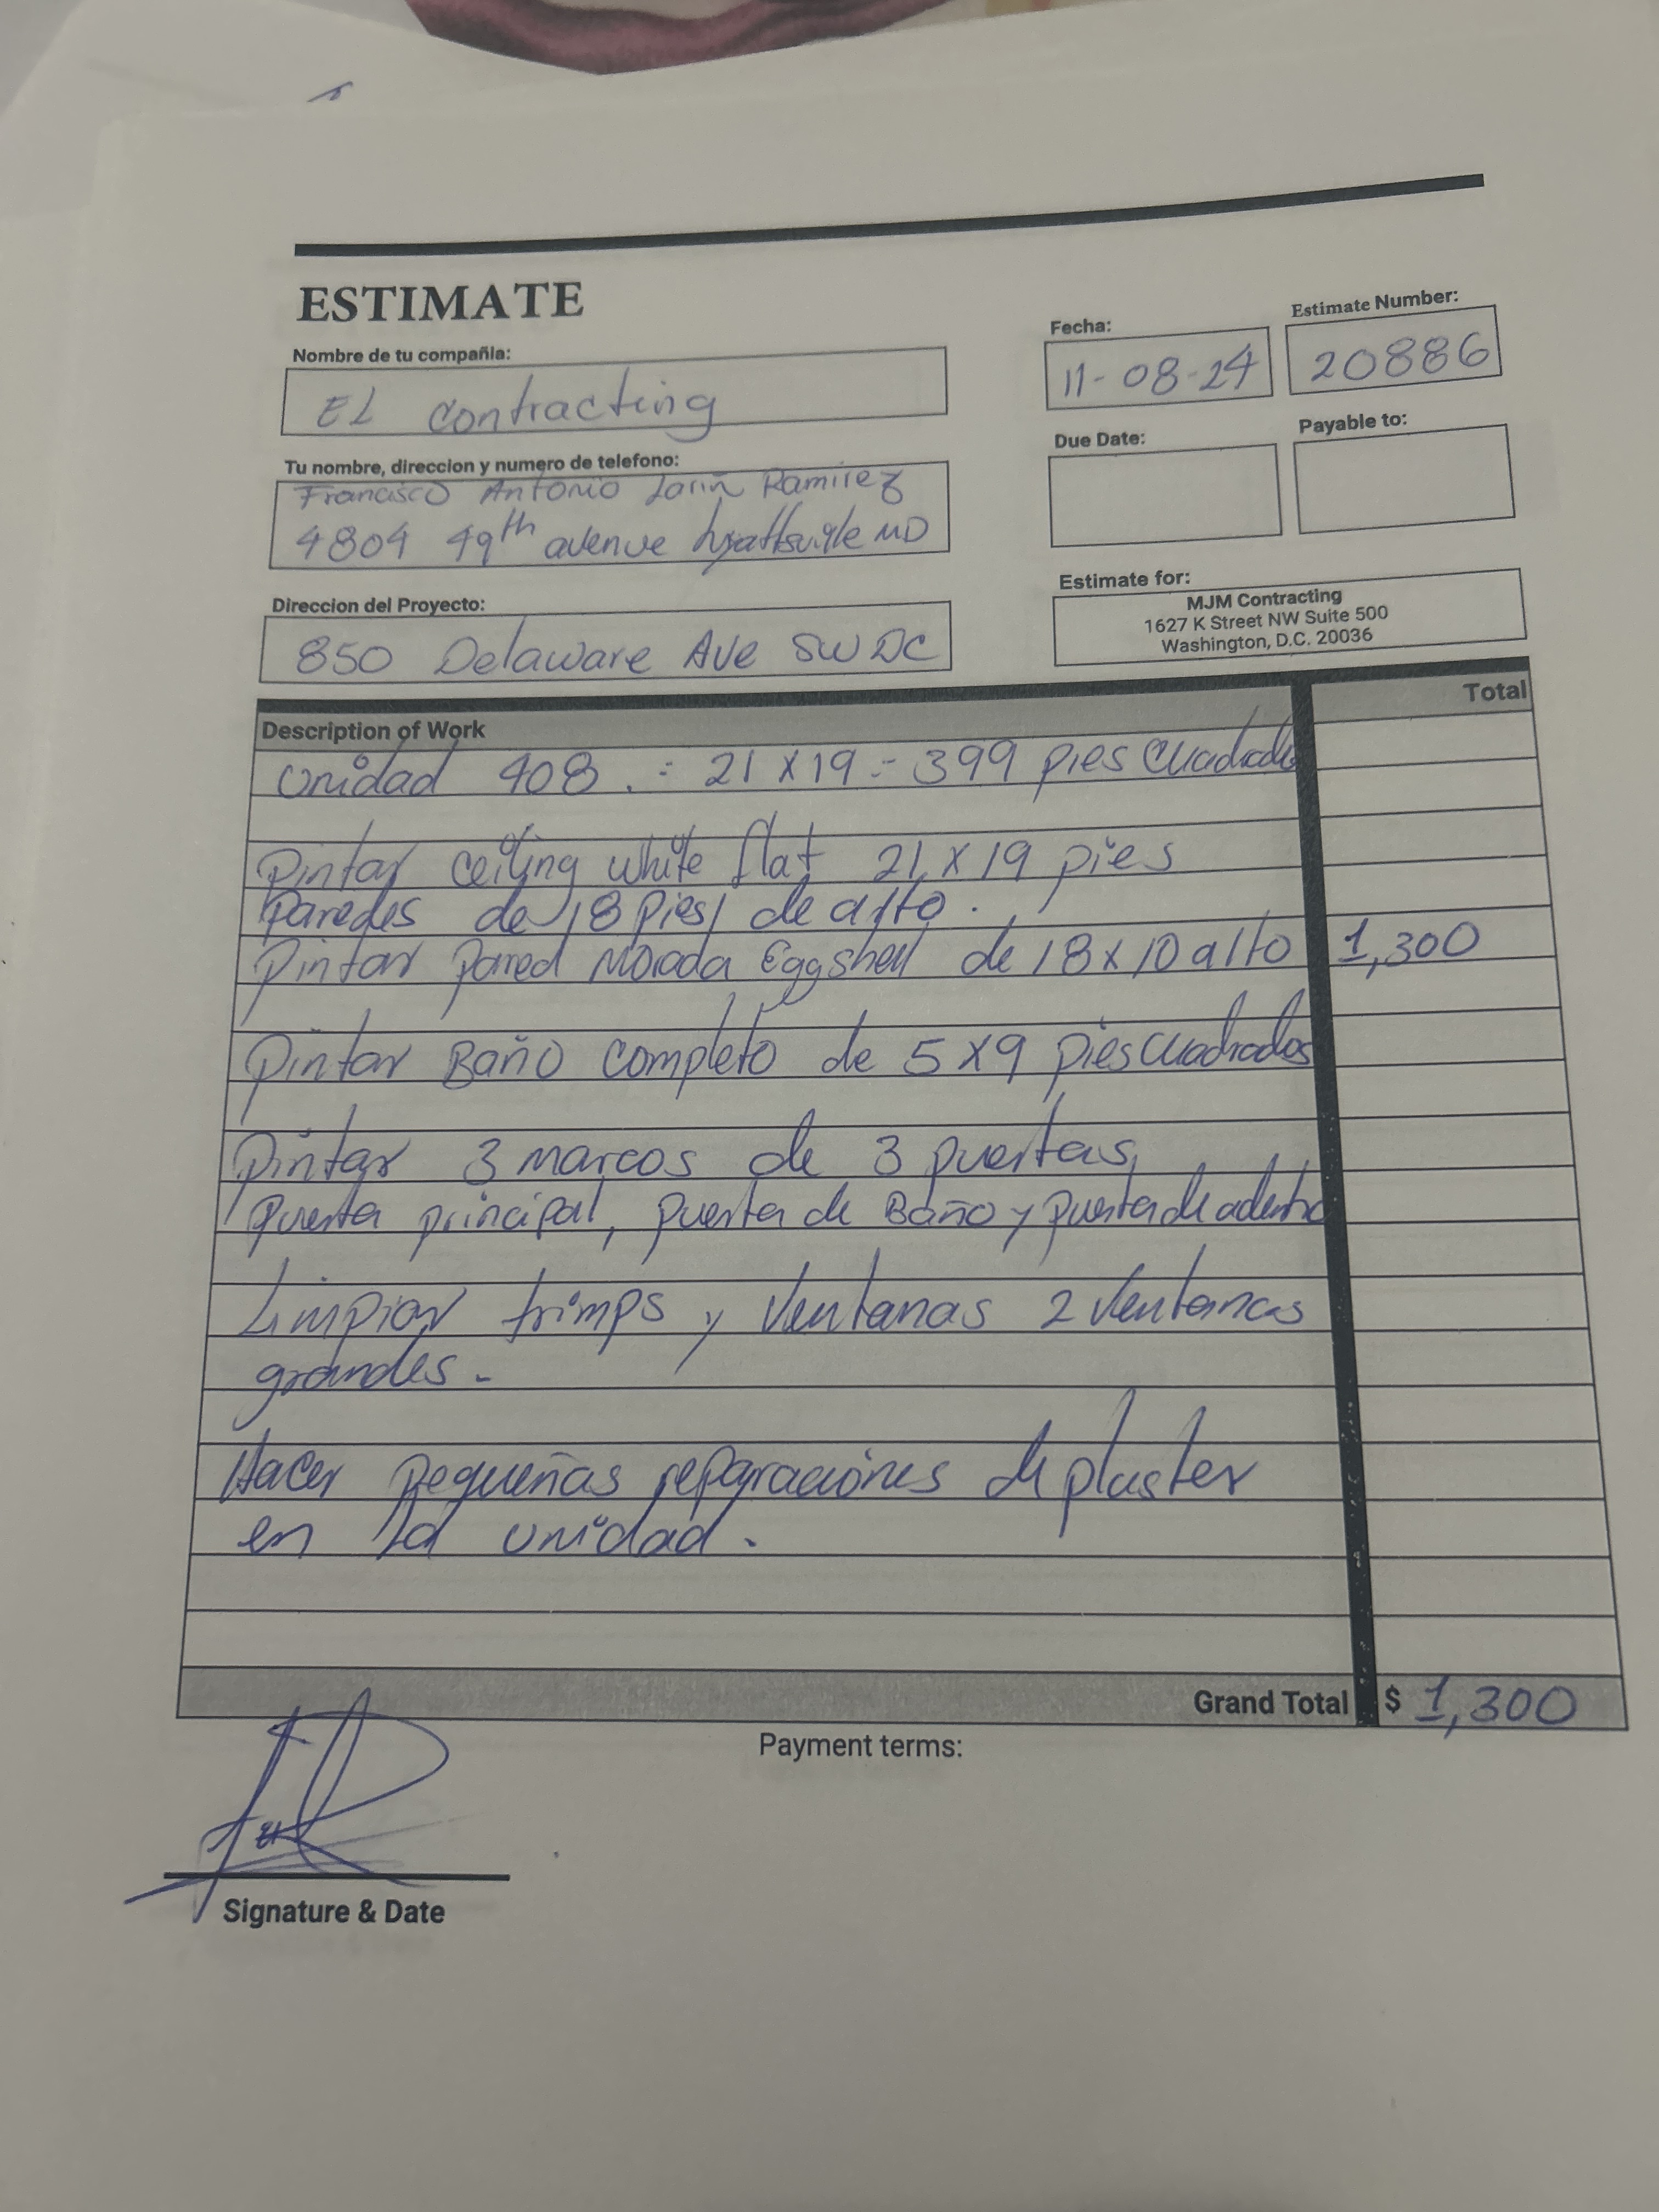 ESTIMATE
Nombre de tu compañia:
EL contracting
Fecha:
11-08-24
Estimate Number:
20886
Tu nombre, direccion y numero de telefono:
Francisco Antonio Ramirez
4804 49th avenue hyattsville MD
Due Date:
Payable to:
Direccion del Proyecto:
850 Delaware Ave SW DC
Estimate for:
MJM Contracting
1627 K Street NW Suite 500
Washington, D.C. 20036
Description of Work
Total
Unidad 408. = 21 x 19 = 399 pies cuadrados
Pintar ceiling white flat 21 x 19 pies
paredes de 18 pies de alto.
Pintar pared Morada Eggshell de 18 x 10 alto 1,300
Pintar Baño completo de 5 x 9 pies cuadrados
Pintar 3 marcos de 3 puertas,
puerta principal, puerta de Baño y puerta de adentro
Limpiar trimps y ventanas 2 ventanas
grandes.
Hacer pequeñas reparaciones de plaster
en la unidad.
Grand Total $ 1,300
Payment terms:
Signature & Date